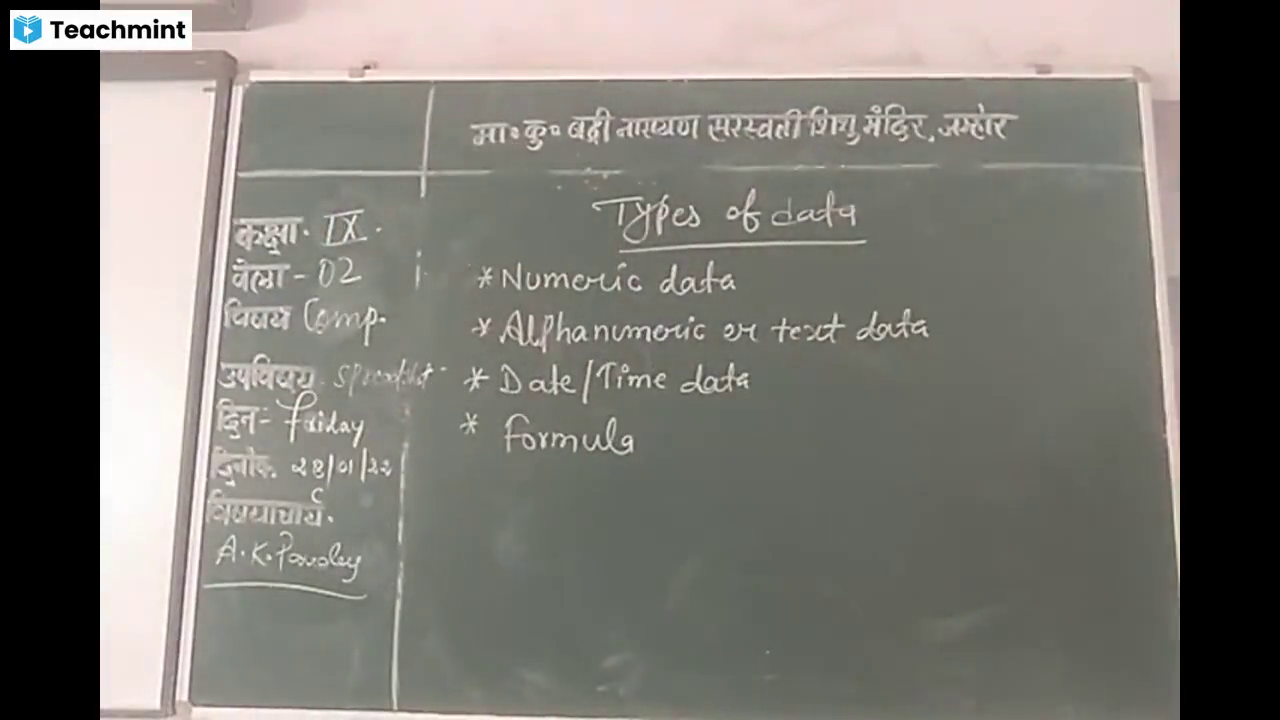 Teachmint
मा॰ कु॰ बद्री नारायण सरस्वती शिशु मंदिर, जम्होर
कक्षा. IX.
वेला - 02
विषय Comp.
उपविषय.
दिन:- Friday
दिनांक. २८/०१/२२
विषयाचार्य.
A.K. Pandey
Types of data
* Numeric data
* Alphanumeric or text data
* Date/Time data
* Formula